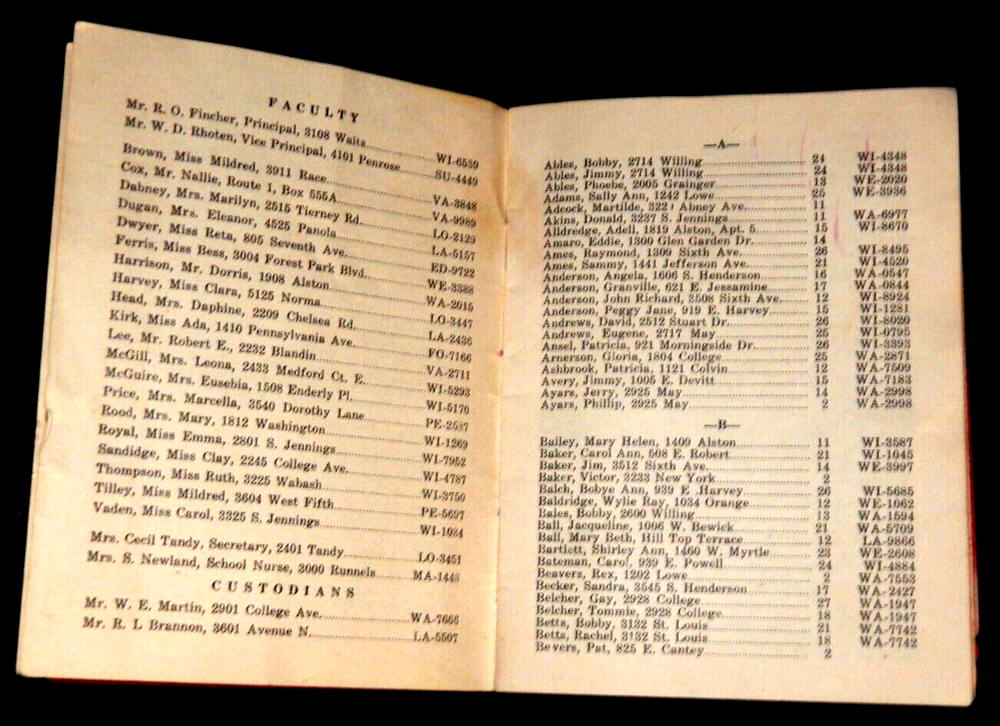 FACULTY
Mr. R. O. Fincher, Principal, 3108 Waits WI-6539
Mr. W. D. Rhoten, Vice Principal, 4101 Penrose SU-4449
Brown, Miss Mildred, 3911 Race VA-3848
Cox, Mr. Nallie, Route 1, Box 555A VA-9989
Dabney, Mrs. Marilyn, 2515 Tierney Rd. LO-2129
Dugan, Mrs. Eleanor, 4525 Panola LA-5157
Dwyer, Miss Reta, 805 Seventh Ave. ED-9722
Ferris, Miss Bess, 3004 Forest Park Blvd. WE-3388
Harrison, Mr. Dorris, 1908 Alston WA-2015
Harvey, Miss Clara, 5125 Norma LO-3447
Head, Mrs. Daphine, 2209 Chelsea Rd. LA-2436
Kirk, Miss Ada, 1410 Pennsylvania Ave. FO-7166
Lee, Mr. Robert E., 2232 Blandin VA-2711
McGill, Mrs. Leona, 2433 Medford Ct. E. WI-5293
McGuire, Mrs. Eusebia, 1508 Enderly Pl. WI-5170
Price, Mrs. Marcella, 3540 Dorothy Lane PE-2537
Rood, Mrs. Mary, 1812 Washington WI-1269
Royal, Miss Emma, 2801 S. Jennings WI-7952
Sandidge, Miss Clay, 2245 College Ave. WI-4787
Thompson, Miss Ruth, 3225 Wabash WI-3750
Tilley, Miss Mildred, 3604 West Fifth PE-5697
Vaden, Miss Carol, 3325 S. Jennings WI-1034
Mrs. Cecil Tandy, Secretary, 2401 Tandy LO-3451
Mrs. S. Newland, School Nurse, 3000 Runnels MA-1448
CUSTODIANS
Mr. W. E. Martin, 2901 College Ave. WA-7666
Mr. R. L Brannon, 3601 Avenue N. LA-5507
—A—
Ables, Bobby, 2714 Willing 24 WI-4348
Ables, Jimmy, 2714 Willing 24 WI-4348
Ables, Phoebe, 2005 Grainger 13 WE-2020
Adams, Sally Ann, 1242 Lowe 25 WE-3936
Adcock, Martilde, 3221 Abney Ave. 11
Akins, Donald, 3237 S. Jennings 11 WA-6977
Alldredge, Adell, 1819 Alston, Apt. 5 15 WI-8670
Amaro, Eddie, 1300 Glen Garden Dr. 14
Ames, Raymond, 1309 Sixth Ave. 26 WI-8495
Ames, Sammy, 1441 Jefferson Ave. 21 WI-4520
Anderson, Angela, 1606 S. Henderson 16 WA-0547
Anderson, Granville, 621 E. Jessamine 17 WA-0844
Anderson, John Richard, 3508 Sixth Ave. 12 WI-8924
Anderson, Peggy Jane, 919 E. Harvey 15 WI-1281
Andrews, David, 2512 Stuart Dr. 26 WI-8020
Andrews, Eugene, 2717 May 25 WI-0795
Ansel, Patricia, 921 Morningside Dr. 26 WI-3393
Arnerson, Gloria, 1804 College 25 WA-2871
Ashbrook, Patricia, 1121 Colvin 12 WA-7509
Avery, Jimmy, 1005 E. Devitt 15 WA-7183
Ayars, Jerry, 2925 May 14 WA-2998
Ayars, Phillip, 2925 May 2 WA-2998
—B—
Bailey, Mary Helen, 1409 Alston 11 WI-3587
Baker, Carol Ann, 508 E. Robert 21 WI-1045
Baker, Jim, 3512 Sixth Ave. 14 WE-3997
Baker, Victor, 3233 New York 2
Balch, Bobye Ann, 939 E .Harvey 26 WI-5685
Baldridge, Wylie Ray, 1034 Orange 12 WE-1062
Bales, Bobby, 2600 Willing 13 WA-1594
Ball, Jacqueline, 1006 W. Bewick 21 WA-5709
Ball, Mary Beth, Hill Top Terrace 12 LA-9866
Bartlett, Shirley Ann, 1460 W. Myrtle 23 WE-2608
Bateman, Carol, 939 E. Powell 24 WI-4884
Beavers, Rex, 1202 Lowe 2 WA-7553
Becker, Sandra, 3545 S. Henderson 17 WA-2427
Belcher, Gay, 2928 College 27 WA-1947
Belcher, Tommie, 2928 College 18 WA-1947
Betts, Bobby, 3132 St. Louis 21 WA-7742
Betts, Rachel, 3132 St. Louis 18 WA-7742
Bevers, Pat, 825 E. Cantey 2